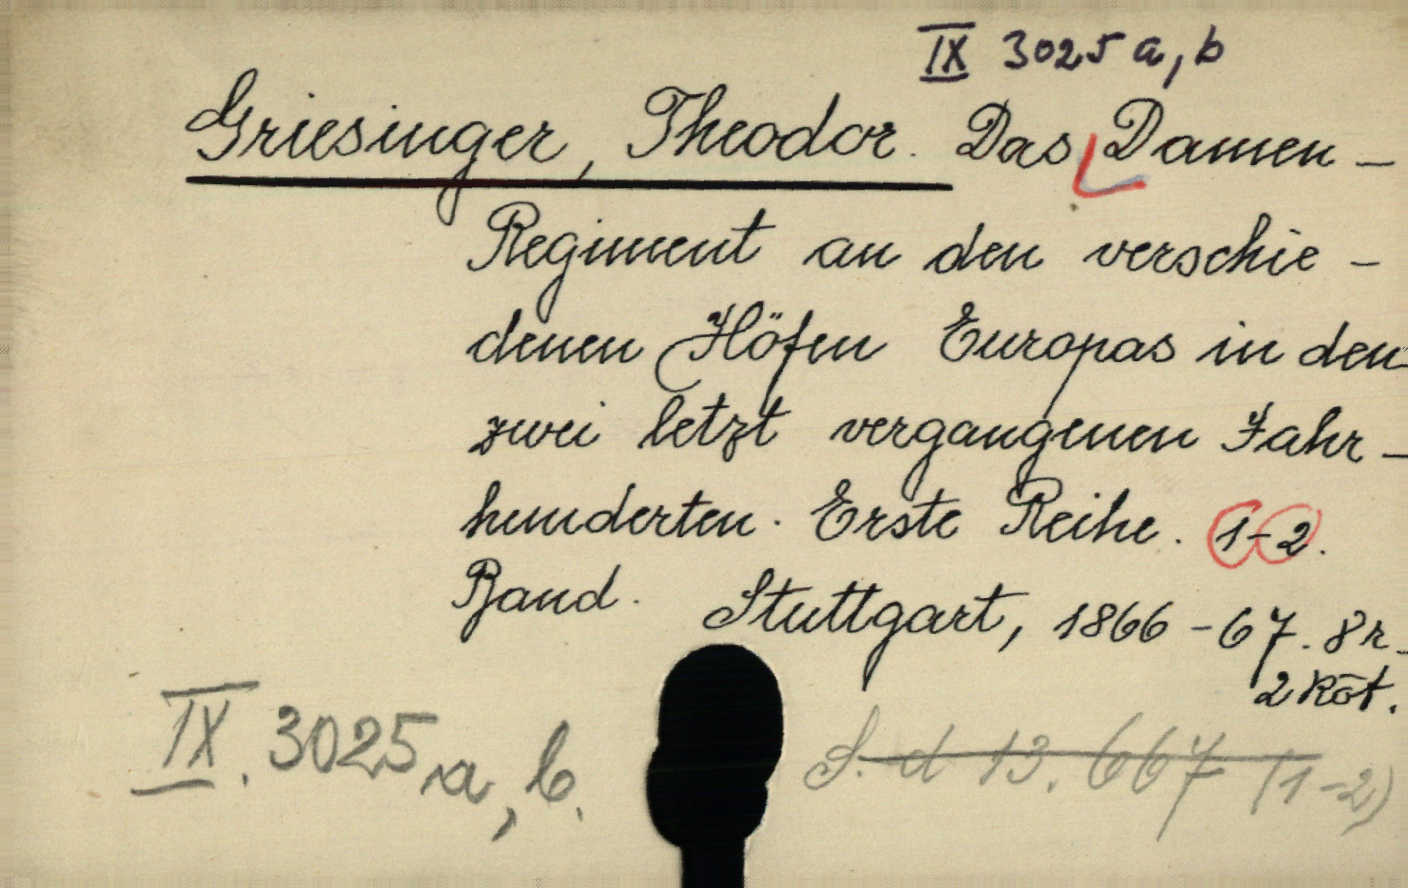 IX 3025 a, b
Griesinger, Theodor. Das Damen-
Regiment an den verschie-
denen Höfen Europas in den
zwei letzt vergangenen Jahr-
hunderten. Erste Reihe. 1-2.
Band. Stuttgart, 1866-67. 8r.
2 Köt.
IX. 3025 a, b.
S. d 13. 667 (1-2)